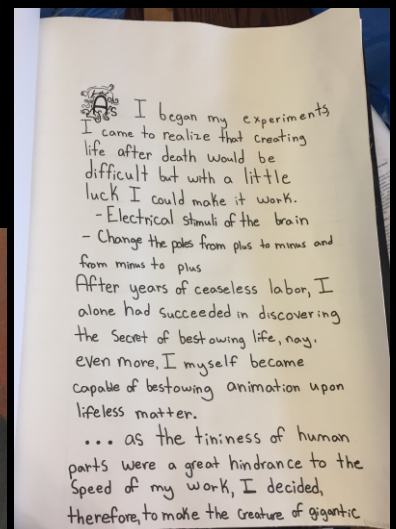 As I began my experiments,
I came to realize that creating
life after death would be
difficult but with a little
luck I could make it work.
- Electrical stimuli of the brain
- Change the poles from plus to minus and
from minus to plus
After years of ceaseless labor, I
alone had succeeded in discovering
the secret of bestowing life, nay,
even more, I myself became
capable of bestowing animation upon
lifeless matter.
... as the tininess of human
parts were a great hindrance to the
speed of my work, I decided,
therefore, to make the creature of gigantic